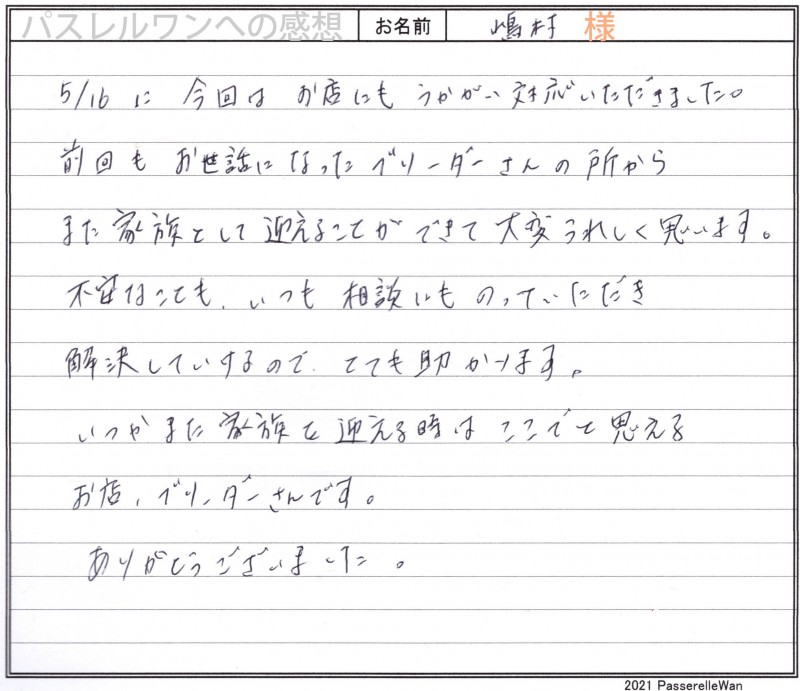 パスレルワンへの感想 お名前 嶋村 様
5/16 に 今回は お店にも うかがい 対応いただきました。
前回も お世話になった ブリーダーさんの所から
また 家族として 迎えることができて 大変うれしく思います。
不安なことも、いつも 相談にも のっていただき
解決しているので、とても助かります。
いつかまた 家族を 迎える時は ここでと 思える
お店、ブリーダーさんです。
ありがとうございました。
2021 PasserelleWan